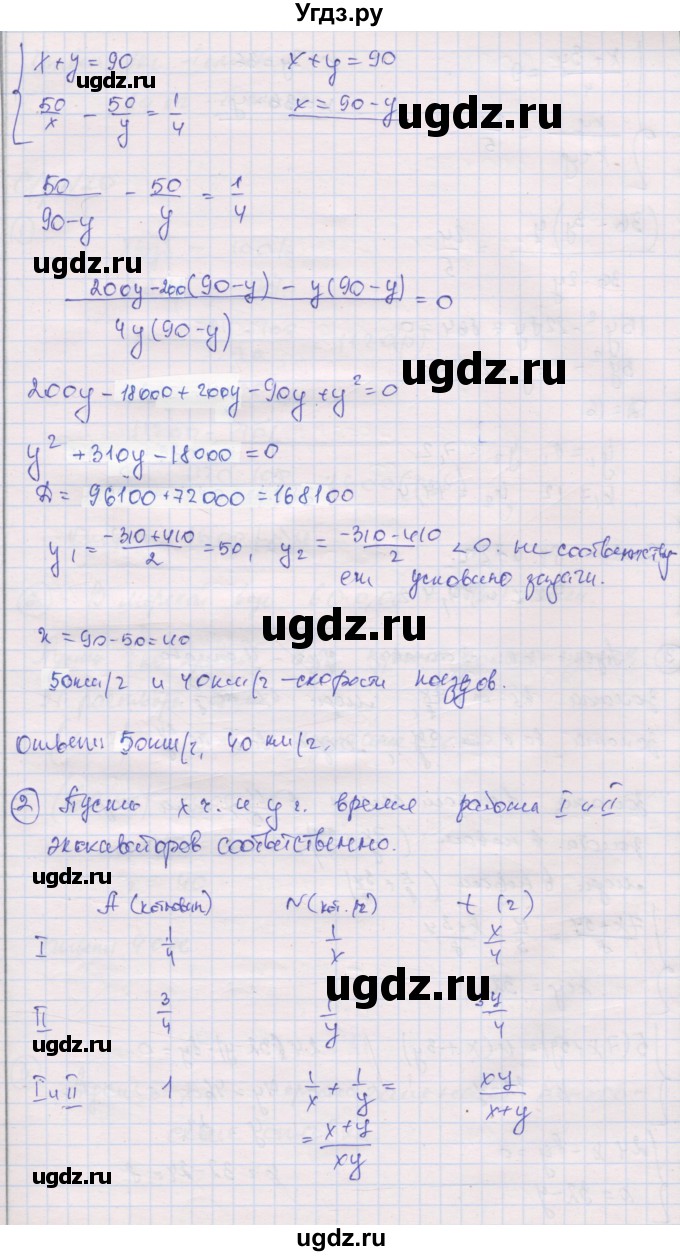 Угдз.ру
x+y=90 x+y=90
ugdz.ru
50/x - 50/y = 1/4 x=90-y
ugdz.ru
50/(90-y) - 50/y = 1/4
ugdz.ru
(200y-200(90-y) - y(90-y))/(4y(90-y)) = 0
ugdz.ru
200y-18000+200y-90y+y²=0
y²+310y-18000=0
Д= 96100+72000=168100
y₁ = (-310+410)/2 = 50, y₂ = (-310-410)/2 <0. не соответству
ет условию задачи.
ugdz.ru
x=90-50=40
50км/ч и 40км/ч-скорости поездов.
Ответ: 50км/ч, 40 км/ч.
ugdz.ru
② Пусть x ч. и y ч. время работы I и II
экскаваторов соответственно.
ugdz.ru
A (котлован) N (кот./ч) t (ч)
I 1/4 1/x x/4
ugdz.ru
II 3/4 1/y 3y/4
ugdz.ru
I и II 1 1/x + 1/y = xy/(x+y)
= (x+y)/xy
ugdz.ru
ugdz.ru